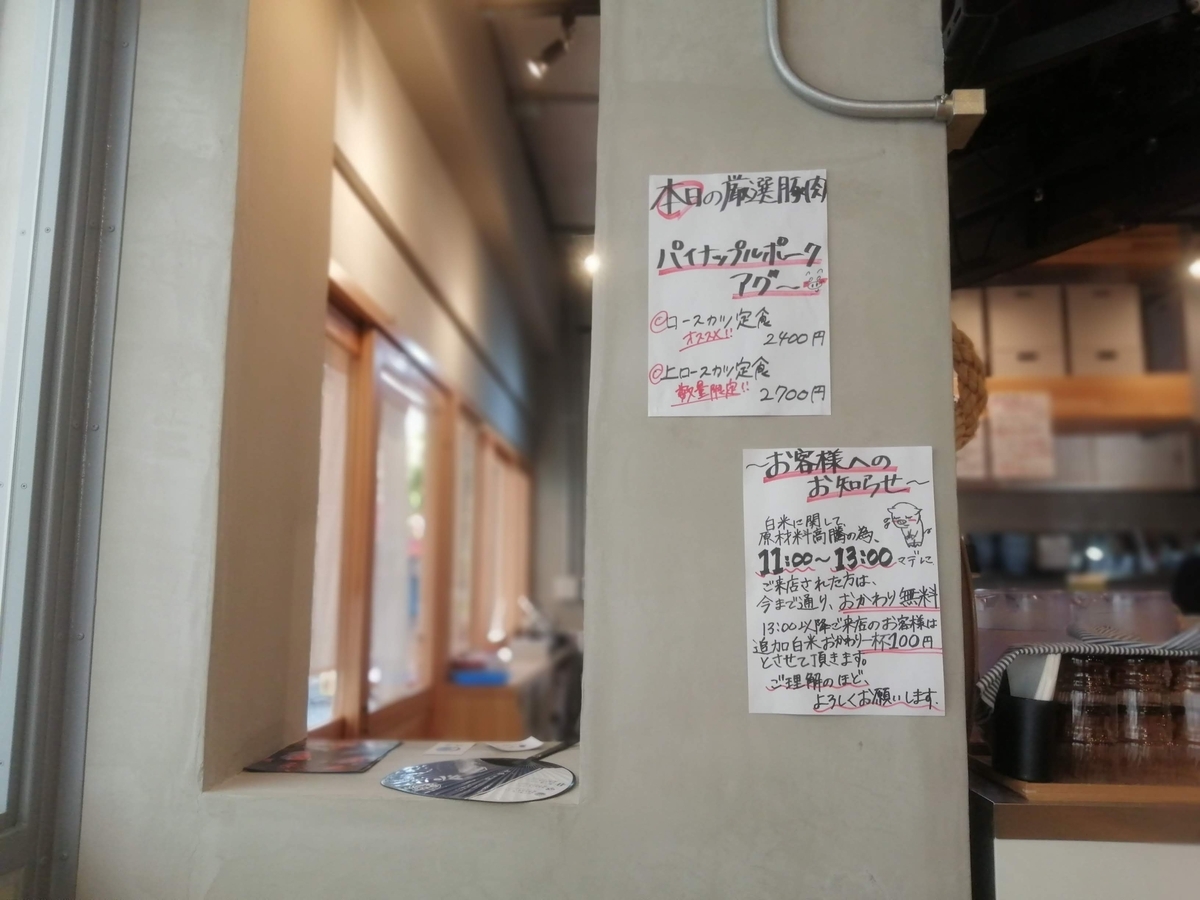 本日の厳選豚肉
パイナップルポーク
アグ～
◎ロースカツ定食
オススメ!!
2400円
◎上ロースカツ定食
数量限定!!
2700円
～お客様への
お知らせ～
白米に関して
原材料高騰の為、
11:00～13:00マデに
ご来店された方は、
今まで通り、おかわり無料
13:00以降ご来店のお客様は
追加白米おかわり一杯100円
とさせて頂きます。
ご理解のほど、
よろしくお願いします.